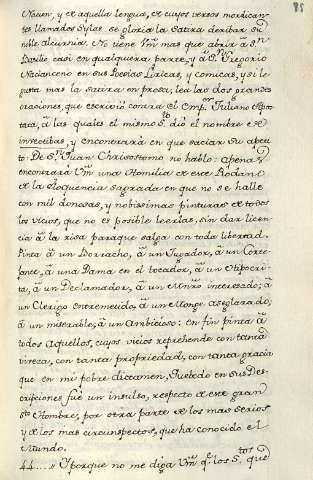 85
Nacion, y de aquella lengua, de cuyos versos mordican-
tes llamados Sylas se gloria la Satira deribar su
noble alcurnia. No tiene Vm̃ mas que abrir a Sⁿ
Basilio casi en qualquiera parte, y à Sⁿ Gregorio
Nacianceno en sus Poesías Liricas, y comicas, y si le
gusta mas la satira en prosa, lea las dos grandes
oraciones, que escrivió contra el Emp.ᵒʳ Juliano Apos-
tata, à las quales el mismo S.ᵗᵒ dió el nombre de
invectibas, y encontrará en que saciar su apeti-
to. De Sⁿ Juan Chrisostomo no hablo: apenas
encontrará Vm̃ una Homilia de este Rodano
de la eloquencia sagrada en que no se halle
con mil donosas, y nobissimas pinturas de todos
los vicios, que no es posible leerlas, sin dar licen-
cia à la risa paraque salga con toda libertad.
Pinta à un Borracho, à un Jugador, à un Corte-
jante, à una Dama en el tocador, à un Hipocri-
ta, à un Declamador, à un Mñro interesado; à
un Clerigo entremetido, à un Monge aseglarado;
à un miserable; à un Ambicioso: en fin pinta à
todos aquellos, cuyos vicios reprehende con tanta
viveza, con tanta propriedad, con tanta gracia
que en mi pobre dictamen, Quevedo en sus Des-
cripciones fue un insulso, respecto de este gran
S.ᵗᵒ Hombre, por otra parte de los mas serios
y de los mas circunspectos, que ha conocido el
Mundo.
44.... Y porque no me diga Vm̃ q.ᵉ los S.ᵗᵒˢ que